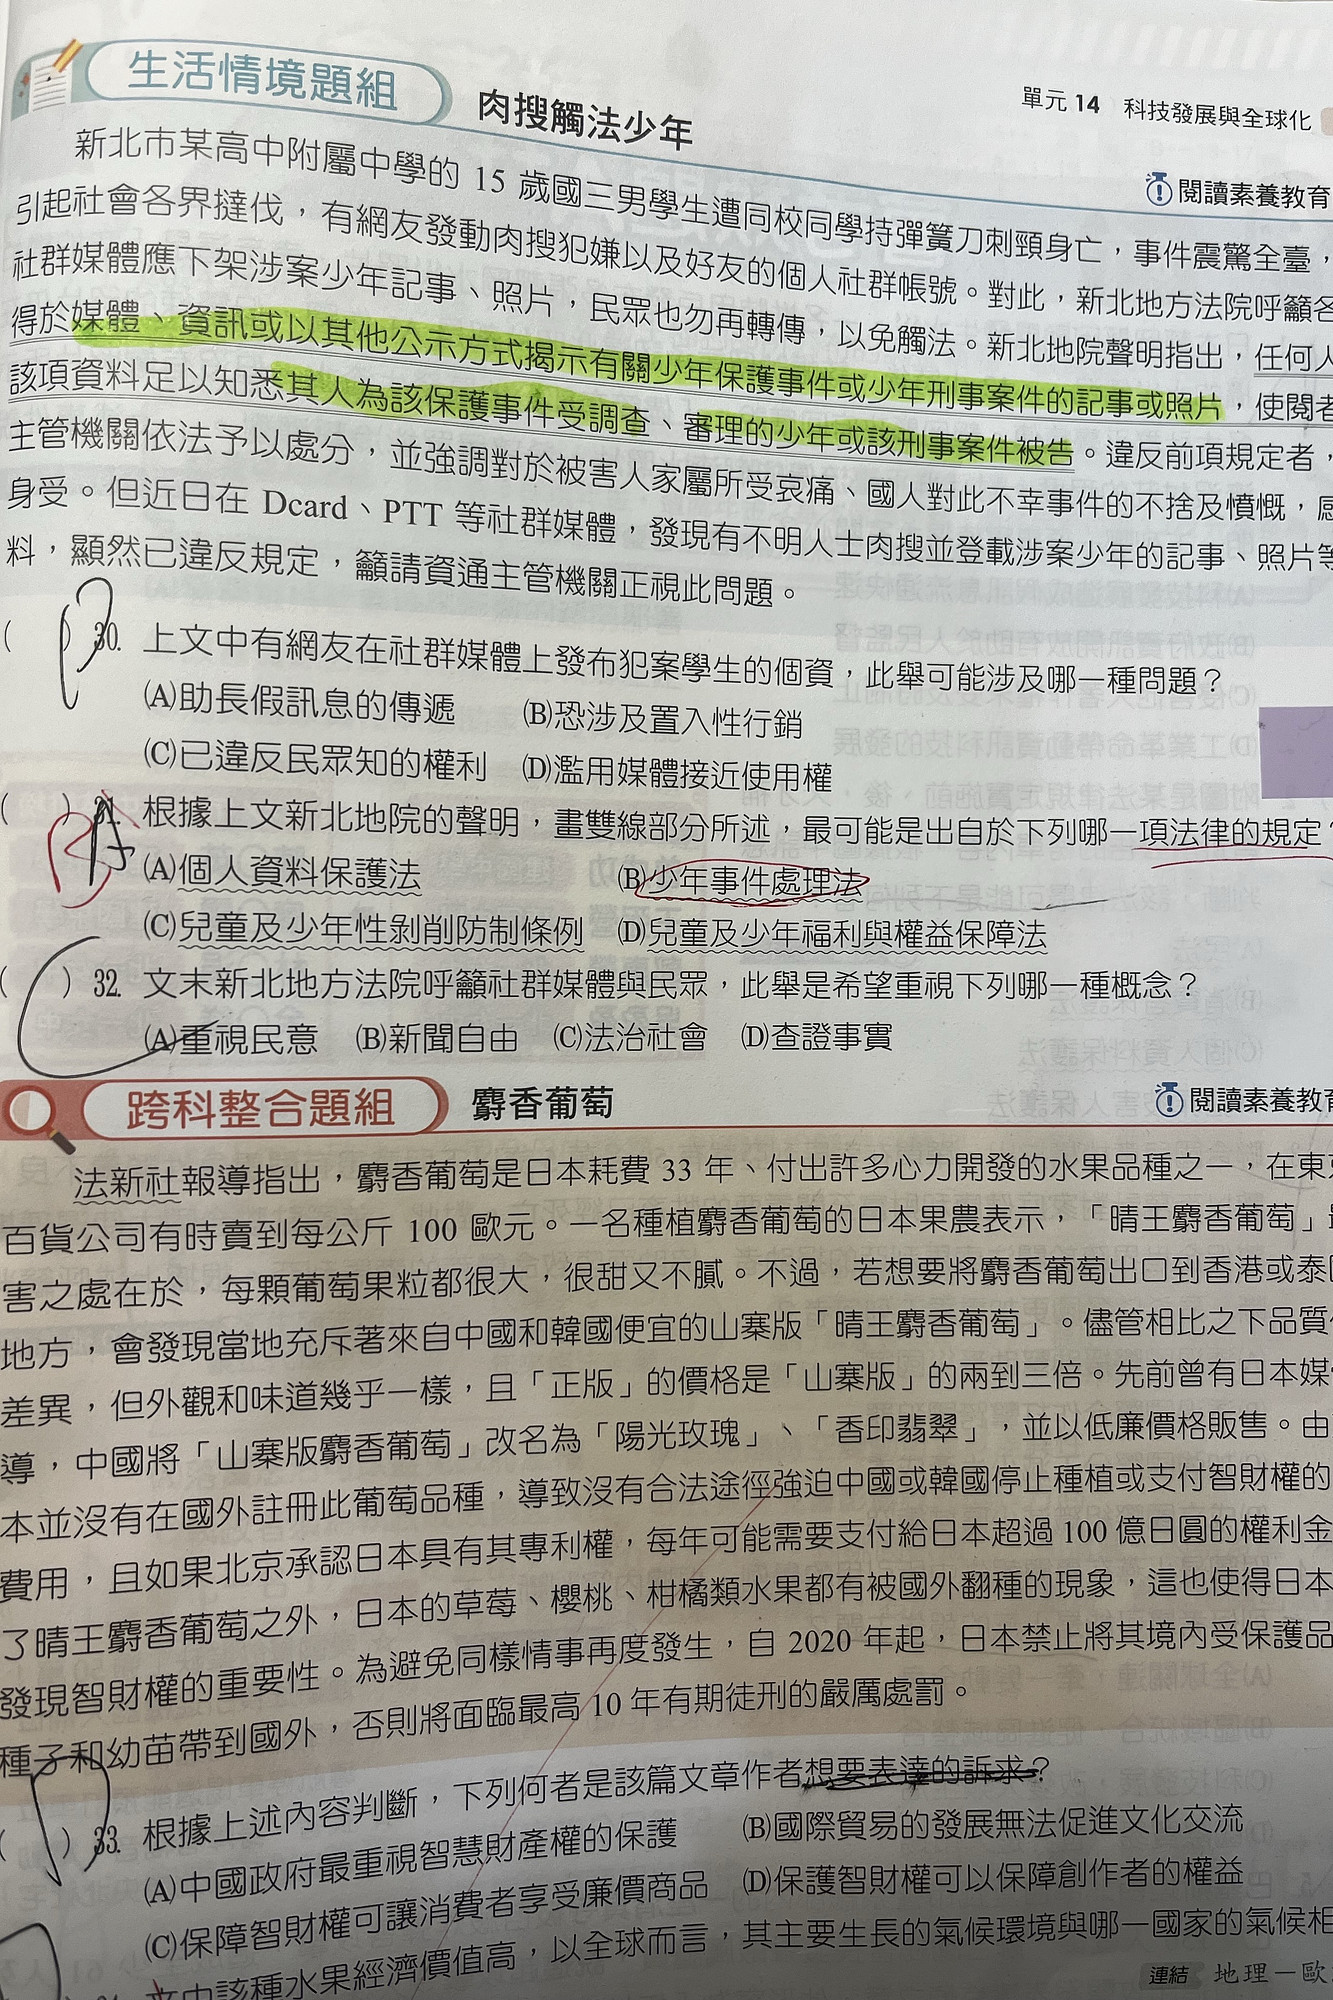 生活情境題組 肉搜觸法少年
單元 14 科技發展與全球化
閱讀素養教育
新北市某高中附屬中學的 15 歲國三男學生遭同校同學持彈簧刀刺頸身亡，事件震驚全臺，
引起社會各界撻伐，有網友發動肉搜犯嫌以及好友的個人社群帳號。對此，新北地方法院呼籲各
社群媒體應下架涉案少年記事、照片，民眾也勿再轉傳，以免觸法。新北地院聲明指出，任何人
得於媒體、資訊或以其他公示方式揭示有關少年保護事件或少年刑事案件的記事或照片，使閱者
該項資料足以知悉其人為該保護事件受調查、審理的少年或該刑事案件被告。違反前項規定者，
主管機關依法予以處分，並強調對於被害人家屬所受哀痛、國人對此不幸事件的不捨及憤慨，感
身受。但近日在 Dcard、PTT 等社群媒體，發現有不明人士肉搜並登載涉案少年的記事、照片等
料，顯然已違反規定，籲請資通主管機關正視此問題。
( ) 30. 上文中有網友在社群媒體上發布犯案學生的個資，此舉可能涉及哪一種問題？
(A)助長假訊息的傳遞 (B)恐涉及置入性行銷
(C)已違反民眾知的權利 (D)濫用媒體接近使用權
( A ) 31. 根據上文新北地院的聲明，畫雙線部分所述，最可能是出自於下列哪一項法律的規定？
(A)個人資料保護法 (B)少年事件處理法
(C)兒童及少年性剝削防制條例 (D)兒童及少年福利與權益保障法
( C ) 32. 文末新北地方法院呼籲社群媒體與民眾，此舉是希望重視下列哪一種概念？
(A)重視民意 (B)新聞自由 (C)法治社會 (D)查證事實
跨科整合題組 麝香葡萄
閱讀素養教育
法新社報導指出，麝香葡萄是日本耗費 33 年、付出許多心力開發的水果品種之一，在東京
百貨公司有時賣到每公斤 100 歐元。一名種植麝香葡萄的日本果農表示，「晴王麝香葡萄」
害之處在於，每顆葡萄果粒都很大，很甜又不膩。不過，若想要將麝香葡萄出口到香港或泰國
地方，會發現當地充斥著來自中國和韓國便宜的山寨版「晴王麝香葡萄」。儘管相比之下品質
差異，但外觀和味道幾乎一樣，且「正版」的價格是「山寨版」的兩到三倍。先前曾有日本媒
導，中國將「山寨版麝香葡萄」改名為「陽光玫瑰」、「香印翡翠」，並以低廉價格販售。由
本並沒有在國外註冊此葡萄品種，導致沒有合法途徑強迫中國或韓國停止種植或支付智財權的
費用，且如果北京承認日本具有其專利權，每年可能需要支付給日本超過 100 億日圓的權利金
了晴王麝香葡萄之外，日本的草莓、櫻桃、柑橘類水果都有被國外翻種的現象，這也使得日本
發現智財權的重要性。為避免同樣情事再度發生，自 2020 年起，日本禁止將其境內受保護品
種子和幼苗帶到國外，否則將面臨最高 10 年有期徒刑的嚴厲處罰。
( D ) 33. 根據上述內容判斷，下列何者是該篇文章作者想要表達的訴求？
(A)中國政府最重視智慧財產權的保護 (B)國際貿易的發展無法促進文化交流
(C)保障智財權可讓消費者享受廉價商品 (D)保護智財權可以保障創作者的權益
文中該種水果經濟價值高，以全球而言，其主要生長的氣候環境與哪一國家的氣候相
連結 地理－歐